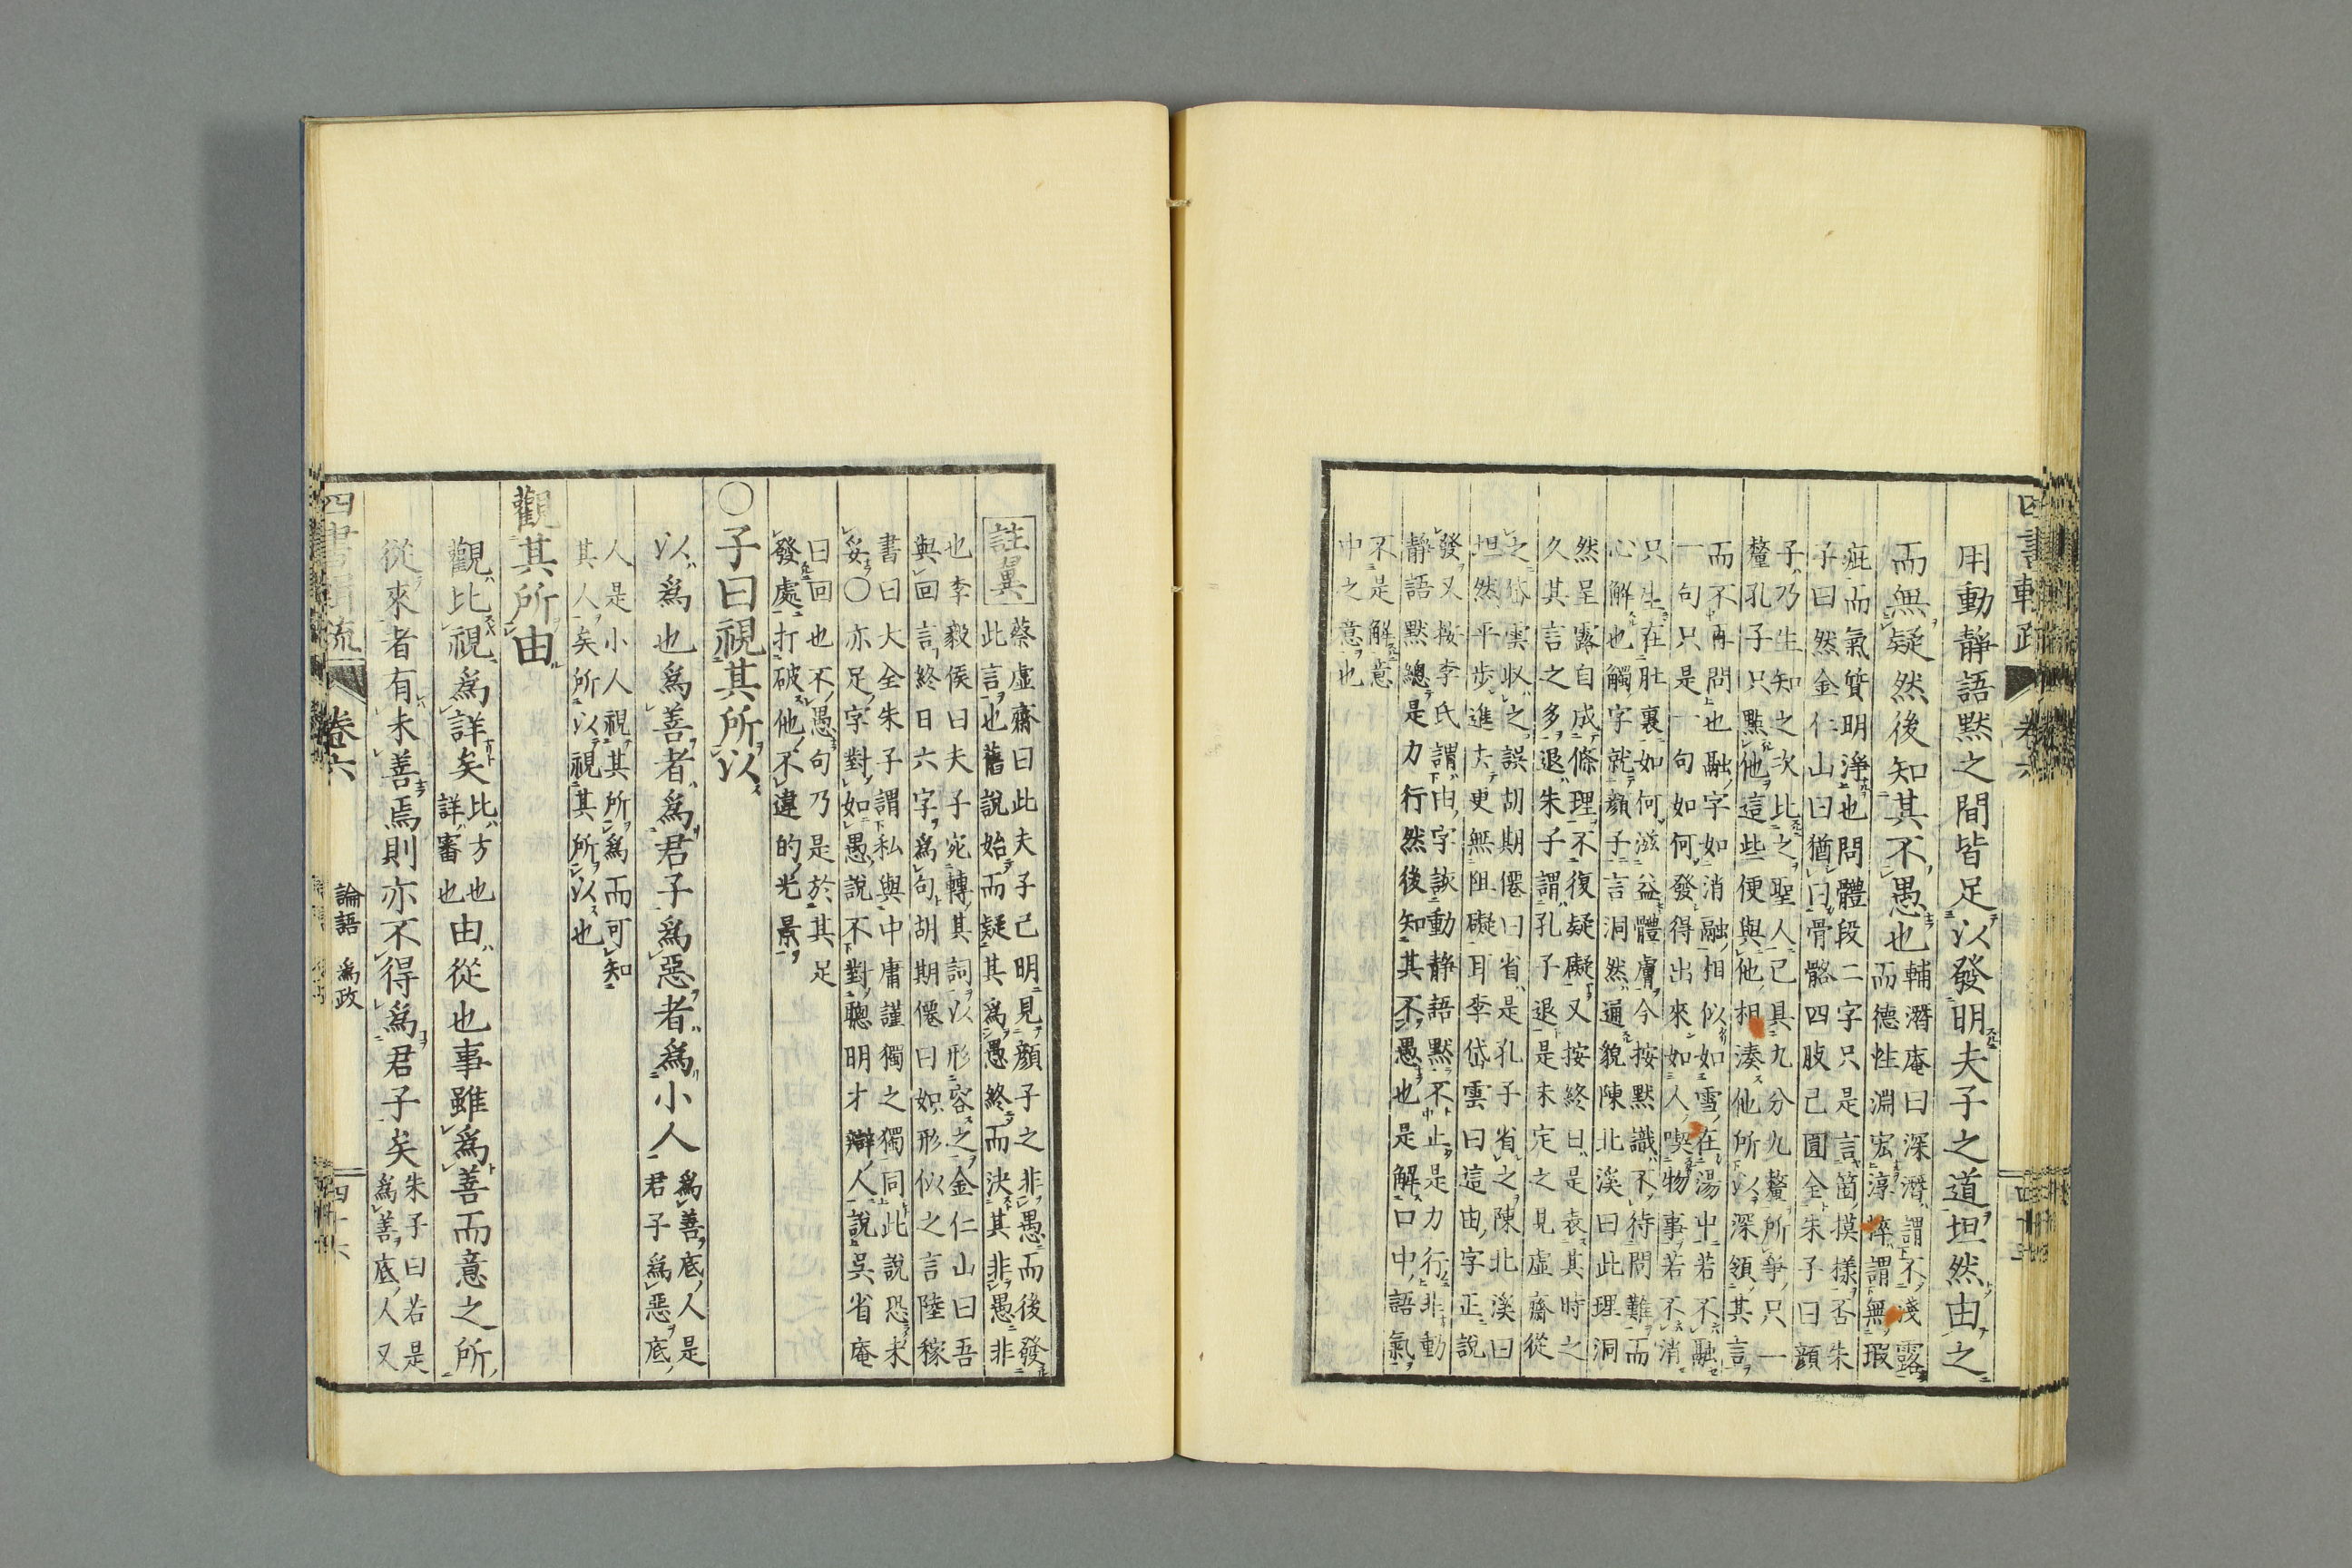 用動靜語默之間皆足以發明夫子之道坦然由之
而無疑然後知其不愚也
輔潛庵曰深潛謂不淺露
而德性淵宏淳粹謂無瑕
疵而氣質明淨也問體段二字只是言箇摸樣否朱
子曰然金仁山曰猶曰骨骼四肢已圓全朱子曰顔
子乃生知之次比之聖人已具九分九釐所爭只一
釐孔子只點他這些便與他相湊他所以深領其言
而不再問也融字如消融相似如雪在湯中若不融
一句只是一句如何發得出來如人喫物事若不消
只生在肚裏如何滋益體膚今按默識不待問難而
心解也觸字就顔子言洞然通貌陳北溪曰此理洞
然呈露自成條理不復疑礙又按終日是衰其時之
久其言之多退朱子謂孔子退是未定之見虛齋從
之岱雲収之誤胡期僊曰省是孔子省之陳北溪曰
坦然平歩進去更無阻礙耳李岱雲曰這由字正說
發又按李氏謂由字詠動靜語默不止是力行非動
靜語默總是力行然後知其不愚也是解口中語氣
不是解意
中之意也
四書輯疏
卷六
註異
蔡虛齋曰此夫子已明見顔子之非愚而後發
此言也舊說始而疑其爲愚終而決其非愚非
也李毅侯曰夫子宛轉其詞以形容之金仁山曰吾
與回言終日六字爲句胡期僊曰如形似之言陸稼
書曰大全朱子謂私與中庸謹獨之獨同此說恐未
妥○亦足字對如愚說不對聰明才辯人說吳省庵
曰回也不愚句乃是於其足
發處打破他不違的光景
○子曰視其所以
以爲也爲善者爲君子爲惡者爲小人
爲善底人是
君子爲惡底
人是小人視其所爲而可知
其人矣所以視其所以也
觀其所由
觀比視爲詳矣
比方也
詳審也
由從也事雖爲善而意之所
從來者有未善焉則亦不得爲君子矣
朱子曰若是
爲善底人又
卷六
論語 爲政
四十六